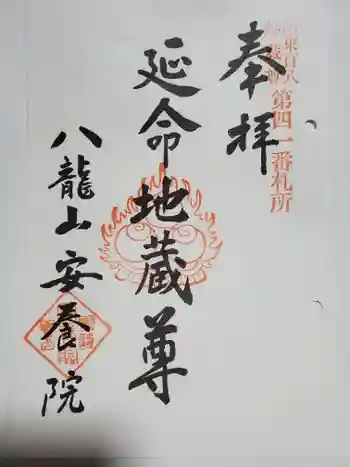 奉拝
第四一番札所
延命地蔵尊
八龍山安養院